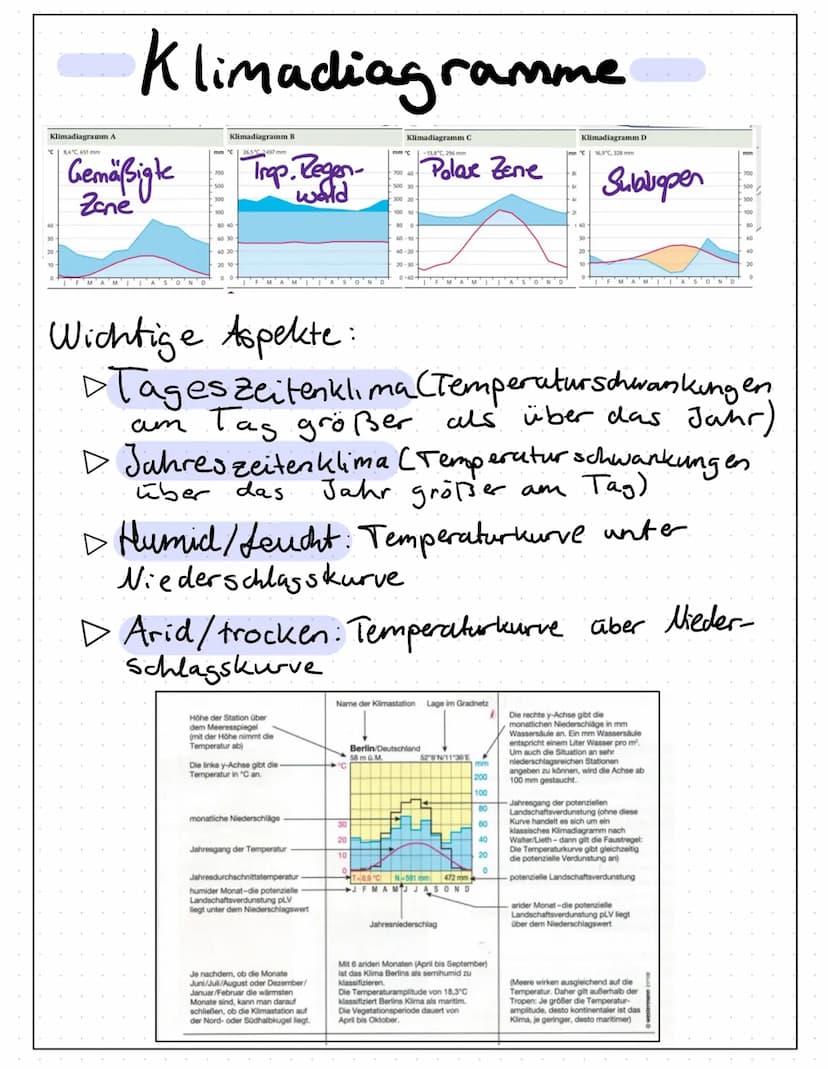 Klimadiagramme
Klimadiagramm A
8,4°C, 651 mm
Gemäßigte
Zone
Klimadiagramm B
26,5°C, 2497 mm
Trop. Regen-
wald
Klimadiagramm C
-13,8°C, 296 mm
Polare Zone
Klimadiagramm D
16,9°C, 328 mm
Subtropen
Wichtige Aspekte:
▷ Tageszeitenklima (Temperaturschwankungen
am Tag größer als über das Jahr)
▷ Jahreszeitenklima (Temperaturschwankungen
über das Jahr größer am Tag)
▷ Humid/feucht: Temperaturkurve unter
Niederschlagskurve
▷ Arid/trocken: Temperaturkurve über Nieder-
schlagskurve
Name der Klimastation Lage im Gradnetz
Höhe der Station über
dem Meeresspiegel
(mit der Höhe nimmt die
Temperatur ab)
Die linke y-Achse gibt die
Temperatur in °C an.
monatliche Niederschläge
Jahresgang der Temperatur
Jahresdurchschnittstemperatur
humider Monat–die potenzielle
Landschaftsverdunstung pLV
liegt unter dem Niederschlagswert
Je nachdem, ob die Monate
Juni/Juli/August oder Dezember/
Januar/Februar die wärmsten
Monate sind, kann man darauf
schließen, ob die Klimastation auf
der Nord- oder Südhalbkugel liegt.
Berlin/Deutschland
58 m ü.M.
°C
mm
200
100
80
30 60
20 40
10 20
0 0
T=8,9 °C N=591 mm 472 mm
J F M A M J J A S O N D
Jahresniederschlag
Mit 6 ariden Monaten (April bis September)
ist das Klima Berlins als semihumid zu
klassifizieren.
Die Temperaturamplitude von 18,3°C
klassifiziert Berlins Klima als maritim.
Die Vegetationsperiode dauert von
April bis Oktober.
Die rechte y-Achse gibt die
monatlichen Niederschläge in mm
Wassersäule an. Ein mm Wassersäule
entspricht einem Liter Wasser pro m².
Um auch die Situation an sehr
niederschlagsreichen Stationen
angeben zu können, wird die Achse ab
100 mm gestaucht.
Jahresgang der potenziellen
Landschaftsverdunstung (ohne diese
Kurve handelt es sich um ein
klassisches Klimadiagramm nach
Walter/Lieth – dann gilt die Faustregel:
Die Temperaturkurve gibt gleichzeitig
die potenzielle Verdunstung an)
potenzielle Landschaftsverdunstung
arider Monat–die potenzielle
Landschaftsverdunstung pLV liegt
über dem Niederschlagswert
(Meere wirken ausgleichend auf die
Temperatur. Daher gilt außerhalb der
Tropen: Je größer die Temperatur-
amplitude, desto kontinentaler ist das
Klima, je geringer, desto maritimer)
© westermann